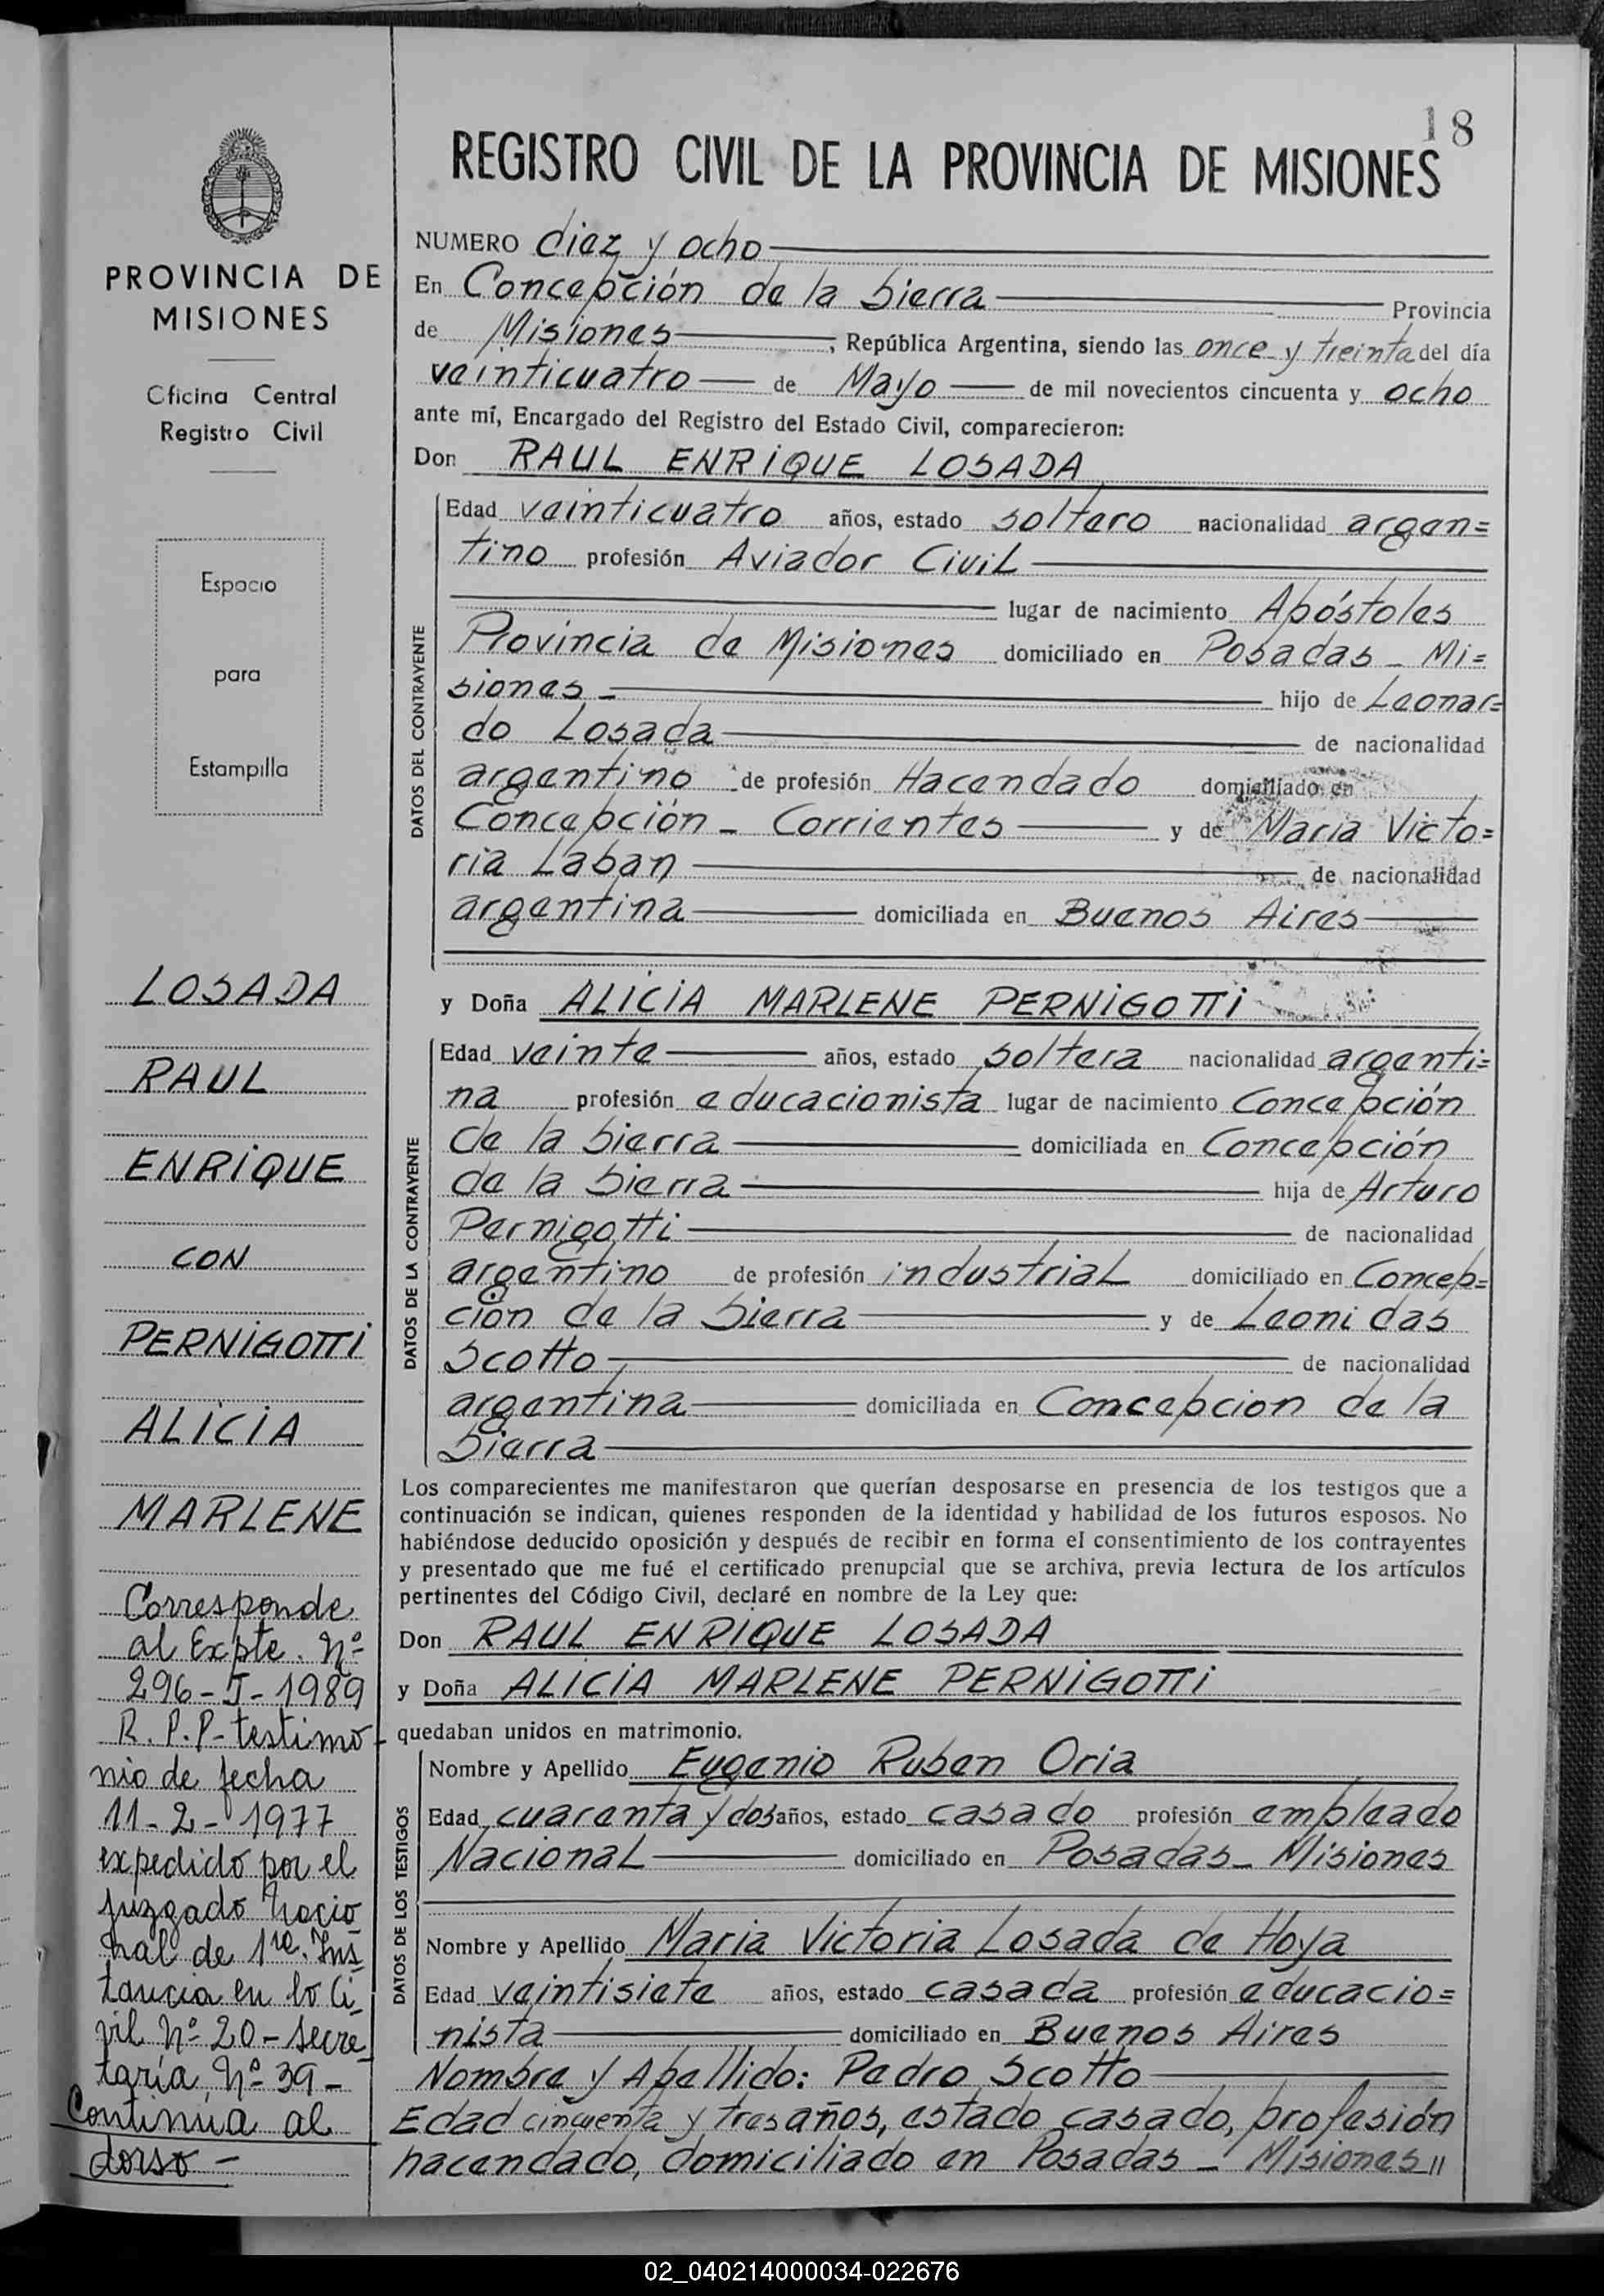 18
REGISTRO CIVIL DE LA PROVINCIA DE MISIONES
PROVINCIA DE
MISIONES
Oficina Central
Registro Civil
Espacio
para
Estampilla
LOSADA
RAUL
ENRIQUE
CON
PERNIGOTTI
ALICIA
MARLENE
Corresponde
al Expte. Nº
296-J-1989
R.P.P- testimo-
nio de fecha
11-2-1977
expedido por el
juzgado Nacio
nal de 1ra. Ins
tancia en lo Ci_
vil Nº 20-Secre_
taría, Nº 39-
Continúa al
dorso-
NUMERO diez y ocho
En Concepción de la Sierra Provincia
de Misiones, República Argentina, siendo las once y treinta del día
veinticuatro de Mayo de mil novecientos cincuenta y ocho
ante mí, Encargado del Registro del Estado Civil, comparecieron:
Don RAUL ENRIQUE LOSADA
DATOS DEL CONTRAYENTE
Edad veinticuatro años, estado soltero nacionalidad argen=
tino profesión Aviador Civil
lugar de nacimiento Apóstoles
Provincia de Misiones domiciliado en Posadas - Mi=
siones - hijo de Leonar=
do Losada de nacionalidad
argentino de profesión Hacendado domiciliado en
Concepción - Corrientes y de Maria Victo=
ria Laban de nacionalidad
argentina domiciliada en Buenos Aires
y Doña ALICIA MARLENE PERNIGOTTI
DATOS DE LA CONTRAYENTE
Edad veinte años, estado soltera nacionalidad argenti=
na profesión educacionista lugar de nacimiento Concepción
de la Sierra domiciliada en Concepción
de la Sierra hija de Arturo
Pernigotti de nacionalidad
argentino de profesión industrial domiciliado en Concep=
ción de la Sierra y de Leonidas
Scotto de nacionalidad
argentina domiciliada en Concepcion de la
Sierra
Los comparecientes me manifestaron que querían desposarse en presencia de los testigos que a
continuación se indican, quienes responden de la identidad y habilidad de los futuros esposos. No
habiéndose deducido oposición y después de recibir en forma el consentimiento de los contrayentes
y presentado que me fué el certificado prenupcial que se archiva, previa lectura de los artículos
pertinentes del Código Civil, declaré en nombre de la Ley que:
Don RAUL ENRIQUE LOSADA
y Doña ALICIA MARLENE PERNIGOTTI
quedaban unidos en matrimonio.
DATOS DE LOS TESTIGOS
Nombre y Apellido Eugenio Ruben Oria
Edad cuarenta y dos años, estado casado profesión empleado
Nacional domiciliado en Posadas - Misiones
Nombre y Apellido Maria Victoria Losada de Hoya
Edad veintisiete años, estado casada profesión educacio=
nista domiciliado en Buenos Aires
Nombre y Apellido: Pedro Scotto
Edad cincuenta y tres años, estado casado, profesión
hacendado, domiciliado en Posadas - Misiones //
02_040214000034-022676